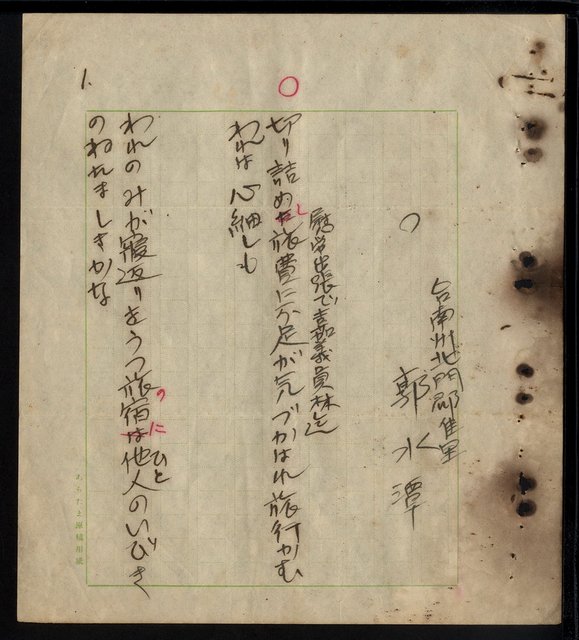 台南州北門郡佳里
郭水潭
○
慰労出張で嘉義員林迄
切り詰めし旅費に不足が気づかはれ旅行かむ
われは心細しも
われのみが寝返りをうつ旅宿のに他人のいびき
ひと
のねたましきかな
1.
あらたま原稿用紙